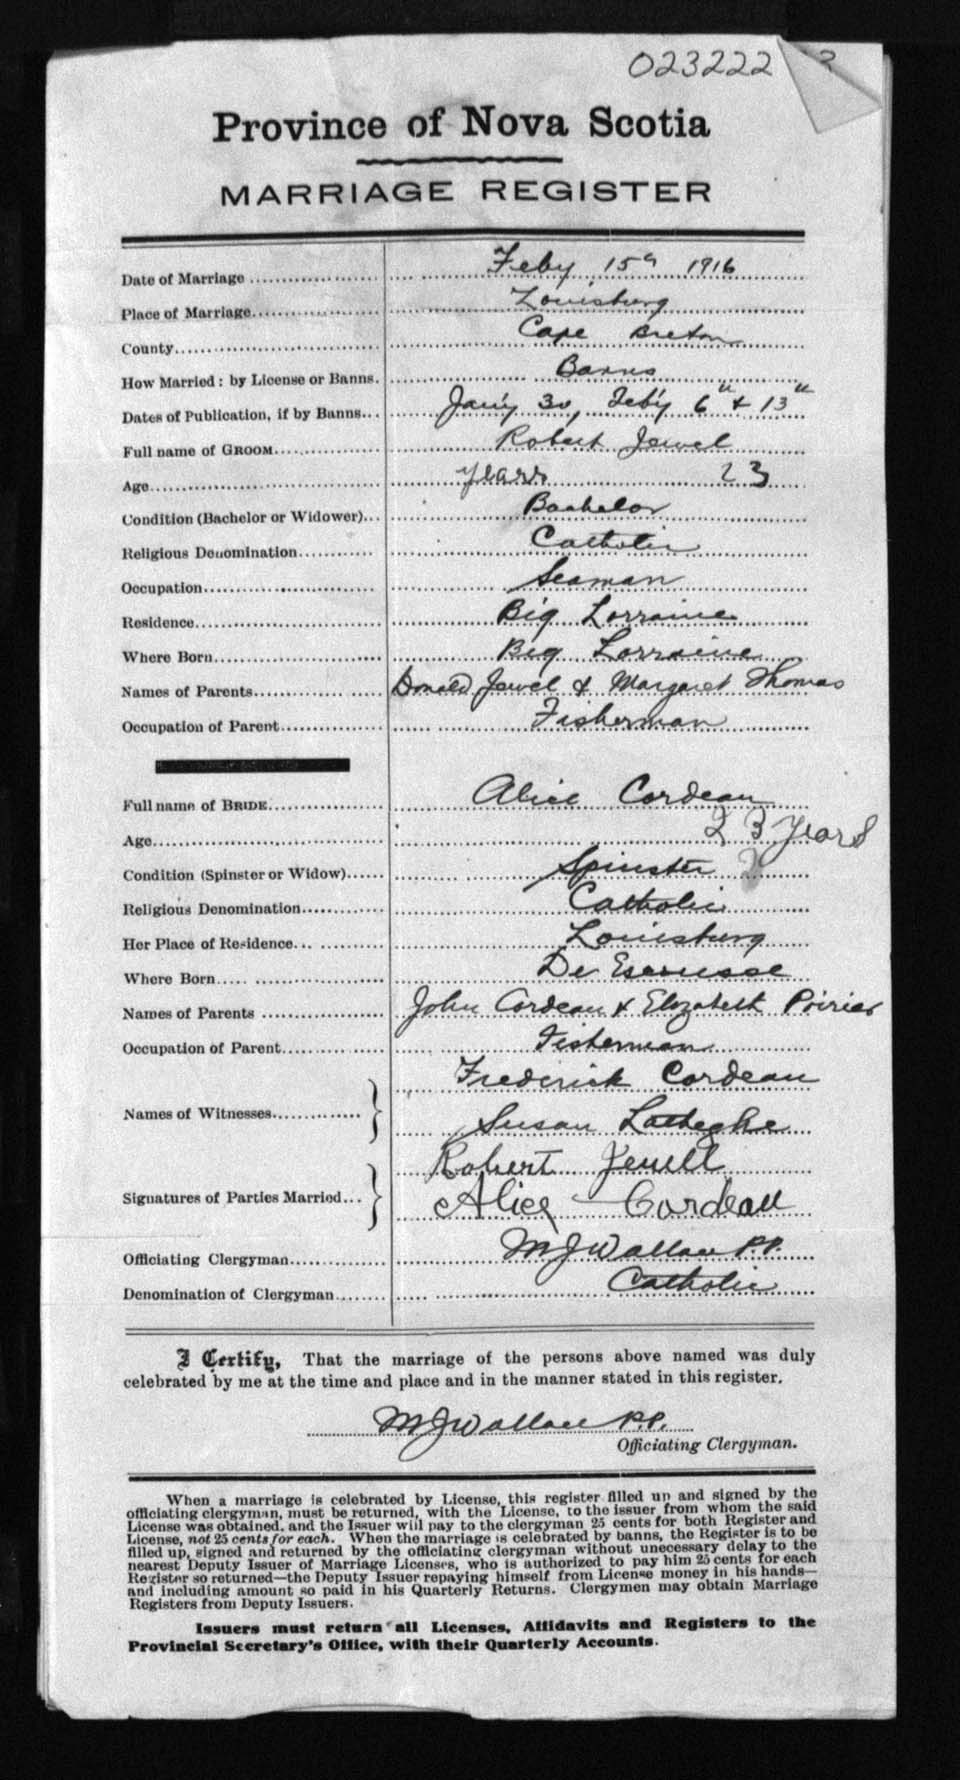 023222
Province of Nova Scotia
MARRIAGE REGISTER
Date of Marriage Feby 15th 1916
Place of Marriage Louisburg
County Cape Breton
How Married: by License or Banns. Banns
Dates of Publication, if by Banns Jan'y 30, Feb'y 6" & 13"
Full name of GROOM Robert Jewel
Age years 23
Condition (Bachelor or Widower) Bachelor
Religious Denomination Catholic
Occupation Seaman
Residence Big Lorraine
Where Born Big Lorraine
Names of Parents Donald Jewel & Margaret Thomas
Occupation of Parent Fisherman
Full name of BRIDE Alice Cordeau
Age 23 years
Condition (Spinster or Widow) Spinster
Religious Denomination Catholic
Her Place of Residence Louisburg
Where Born De Escousse
Names of Parents John Cordeau & Elizabeth Poirier
Occupation of Parent Fisherman
Frederick Cordeau
Names of Witnesses
Susan
Robert Jewell
Signatures of Parties Married
Alice Cordeau
Officiating Clergyman M J Wallace P.P.
Denomination of Clergyman Catholic
I Certify, That the marriage of the persons above named was duly
celebrated by me at the time and place and in the manner stated in this register.
M J Wallace P.P.
Officiating Clergyman.
When a marriage is celebrated by License, this register filled up and signed by the
officiating clergyman, must be returned, with the License, to the issuer from whom the said
License was obtained, and the Issuer will pay to the clergyman 25 cents for both Register and
License, not 25 cents for each. When the marriage is celebrated by banns, the Register is to be
filled up, signed and returned by the officiating clergyman without unnecessary delay to the
nearest Deputy Issuer of Marriage Licenses, who is authorized to pay him 25 cents for each
Register so returned—the Deputy Issuer repaying himself from License money in his hands—
and including amount so paid in his Quarterly Returns. Clergymen may obtain Marriage
Registers from Deputy Issuers.
Issuers must return all Licenses, Affidavits and Registers to the
Provincial Secretary's Office, with their Quarterly Accounts.